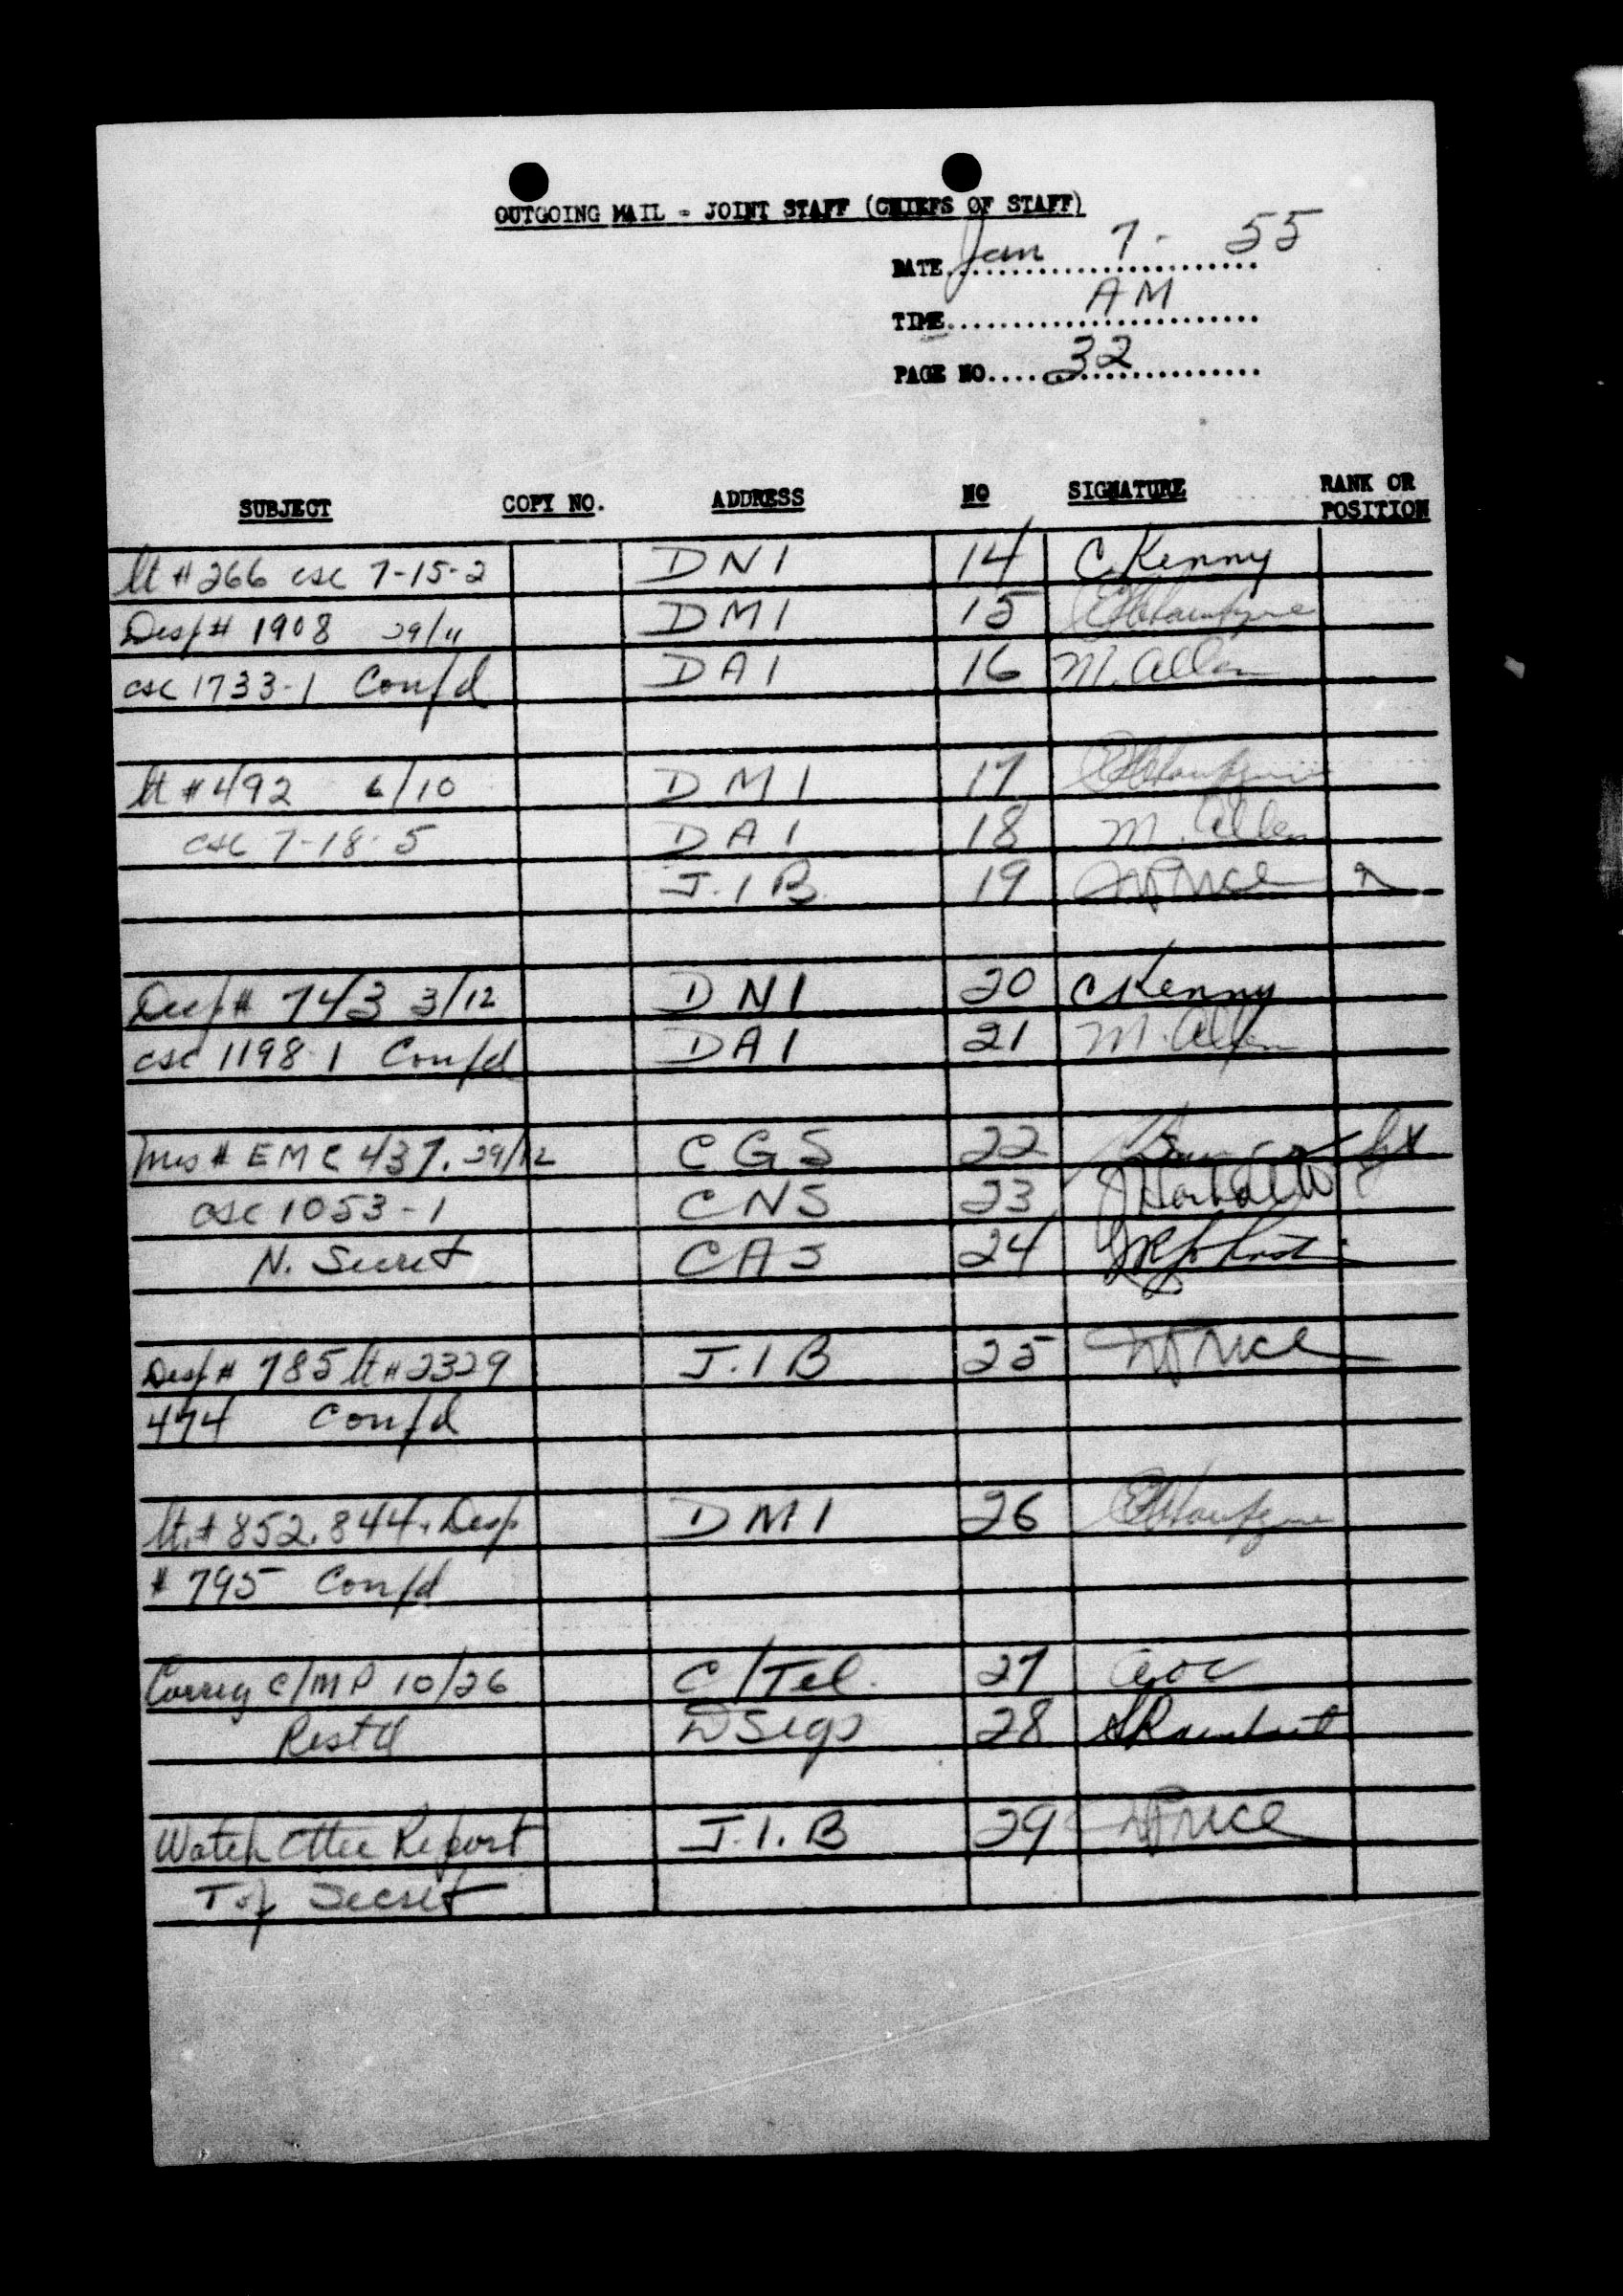 OUTGOING MAIL - JOINT STAFF (CHIEFS OF STAFF)
DATE Jan 7 - 55
TIME AM
PAGE NO 32
SUBJECT COPY NO. ADDRESS NO SIGNATURE RANK OR POSITION
lt # 266 csc 7-15-2 DNI 14 C Kenny
Desp # 1908 29/11 DMI 15
csc 1733-1 Conf'd DAI 16 M. Allen
lt # 492 6/10 DMI 17
csc 7-18-5 DAI 18 M. Allen
J.I.B. 19 Price
Desp # 743 3/12 DNI 20 C Kenny
csc 1198-1 Conf'd DAI 21 M. Allen
mes # EMC 437. 29/12 CGS 22
csc 1053-1 CNS 23
N. Secret CAS 24
Desp # 785 lt # 2329 J.I.B 25 Price
474 Conf'd
lt. # 852, 844, Desp DMI 26
# 795 Conf'd
Corrig C/MP 10/26 C/Tel. 27
Rest'd DSigs 28
Watch Cttee Report J.I.B 29 Price
Top Secret